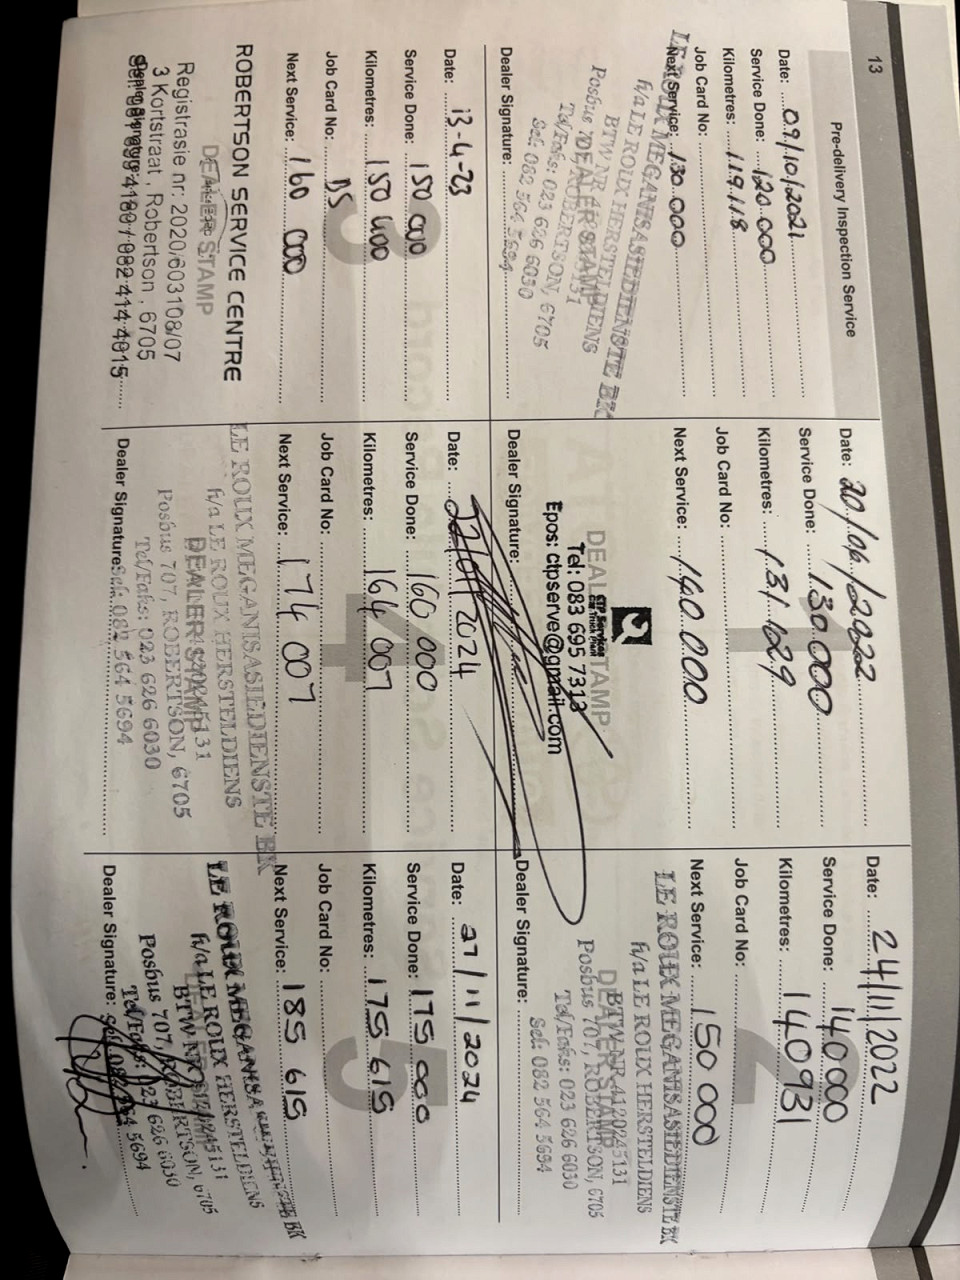 13
Pre-delivery Inspection Service
Date: 09/10/2021
Service Done: 120.000
Kilometres: 119.118
Job Card No:
Next Service: 130.000
LE ROUX MEGANISASIEDIENSTE BK
h/a LE ROUX HERSTELDIENS
BTW NR
Posbus 707, ROBERTSON, 6705
Tel/Faks: 023 626 6030
Sel: 082 564 5694
DEALER STAMP
Dealer Signature:
Date: 20/06/2022
Service Done: 130.000
Kilometres: 131.629
Job Card No:
Next Service: 140.000
CTP Services
DEALER STAMP
Tel: 083 695 7313
Epos: ctpserve@gmail.com
Dealer Signature:
2
Date: 24/11/2022
Service Done: 140000
Kilometres: 140931
Job Card No:
Next Service: 150 000
LE ROUX MEGANISASIEDIENSTE BK
h/a LE ROUX HERSTELDIENS
BTW NR 4120245131
DEALER STAMP
Posbus 707, ROBERTSON, 6705
Tel/Faks: 023 626 6030
Sel: 082 564 5694
Dealer Signature:
3
Date: 13-4-23
Service Done: 150 000
Kilometres: 150 400
Job Card No: DS
Next Service: 160 000
ROBERTSON SERVICE CENTRE
DEALER STAMP
Registrasie nr: 2020/603108/07
3 Kortstraat, Robertson, 6705
Dealer Signature:
082 414 4015
4
Date: 22/01/2024
Service Done: 160 000
Kilometres: 164 007
Job Card No:
Next Service: 174 007
LE ROUX MEGANISASIEDIENSTE BK
h/a LE ROUX HERSTELDIENS
DEALER STAMP
Posbus 707, ROBERTSON, 6705
Tel/Faks: 023 626 6030
Dealer Signature: Sel: 082 564 5694
5
Date: 27/11/2024
Service Done: 175 000
Kilometres: 175 615
Job Card No:
Next Service: 185 615
LE ROUX MEGANISASIEDIENSTE BK
h/a LE ROUX HERSTELDIENS
BTW NR 4120245131
Posbus 707, ROBERTSON, 6705
Tel/Faks: 023 626 6030
Dealer Signature: Sel: 082 564 5694